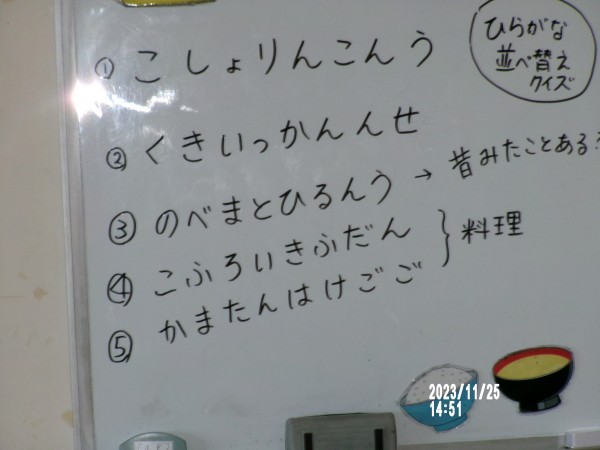 ひらがな
並べ替え
クイズ
① こしょりんこんう
② くきいっかんんせ
③ のべまとひるんう → 昔みたことある?
④ こふろいきふだん } 料理
⑤ かまたんはけごご
2023/11/25
14:51